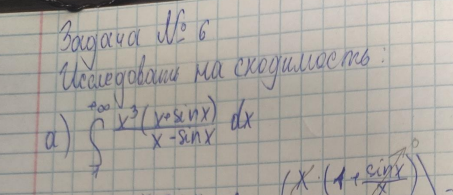 Задача № 6
Исследовать на сходимость:
а) ∫ +∞ x³(x+sinx) / x-sinx dx
(x·(1+ sinx/x